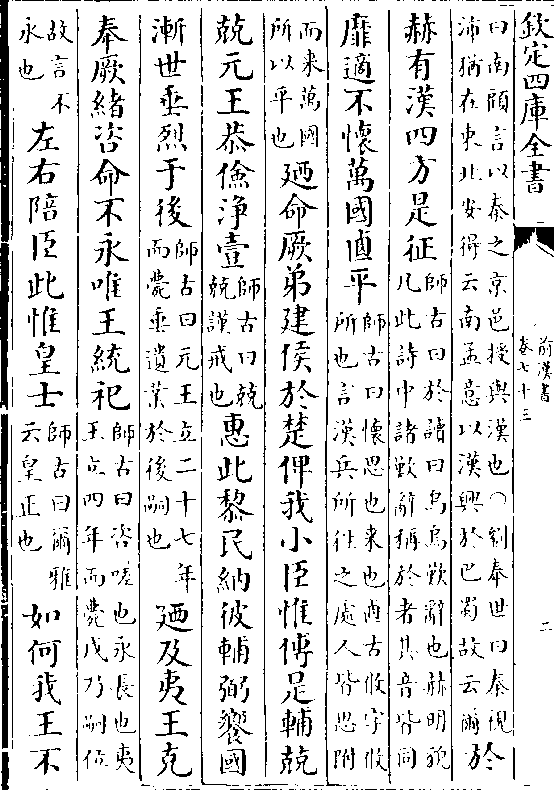 欽定四庫全書
前漢書
卷七十三
二
曰南顧言以秦之京邑授與漢也○劉奉世曰秦俔
沛猶在東北安得云南孟意以漢興於巴蜀故云爾
於
赫有漢四方是征
師古曰於讀曰烏烏歎辭也赫明貌
凡此詩中諸歎辭稱於者其音皆同
靡適不懷萬國逌平
師古曰懷思也來也逌古攸字攸
所也言漢兵所往之處人皆思附
而來萬國
所以平也
廼命厥弟建侯於楚俾我小臣惟傅是輔兢
兢元王恭儉淨壹
師古曰兢
兢謹戒也
惠此黎民納彼輔弼饗國
漸世垂烈于後
師古曰元王立二十七年
而薨垂遺業於後嗣也
廼及夷王克
奉厥緒咨命不永唯王統祀
師古曰咨嗟也永長也夷
王立四年而薨戊乃嗣位
故言不
永也
左右陪臣此惟皇士
師古曰爾雅
云皇正也
如何我王不